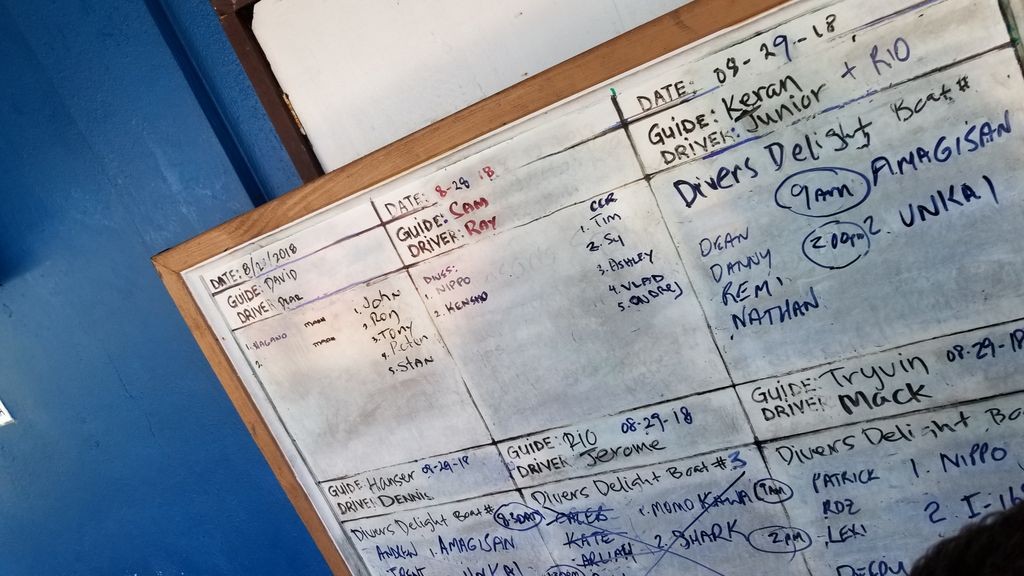 DATE: 8/2 /2018
GUIDE: DAVID
DRIVE:
1. NAGANO
2.
1. John
2. Ron
3. Tony
4.
5. STAN
DATE: 8-28 18
GUIDE: SAM
DRIVER: RAY
DIVES:
1. NIPPO
2. KENSHO
CCR
1. Tim
2. Sy
3. ASHLEY
4. VLAD
5. AUDREY
DATE: 08-29-18
GUIDE: Keran + RIO
DRIVER: Junior
Divers Delight Boat #
9AM AMAGISAN
2:00pm 2. UNKAI
DEAN
DANNY
REMI
NATHAN
GUIDE: Hanser 09-29-18
DRIVE: DENNIS
Divers Delight Boat #
8:30AM
ANDREW 1. AMAGISAN
TRENT UNKAI
GUIDE: RIO 08-29-18
DRIVER: Jerome
Divers Delight Boat #3
CALEB 1. MOMO KAWA 9AM
KATE 2. SHARK 2PM
ARLIAH
GUIDE: Tryvin 08-29-18
DRIVER: Mack
Divers Delight Boa
PATRICK 1. NIPPO
ROZ 2. I-16
LEKI